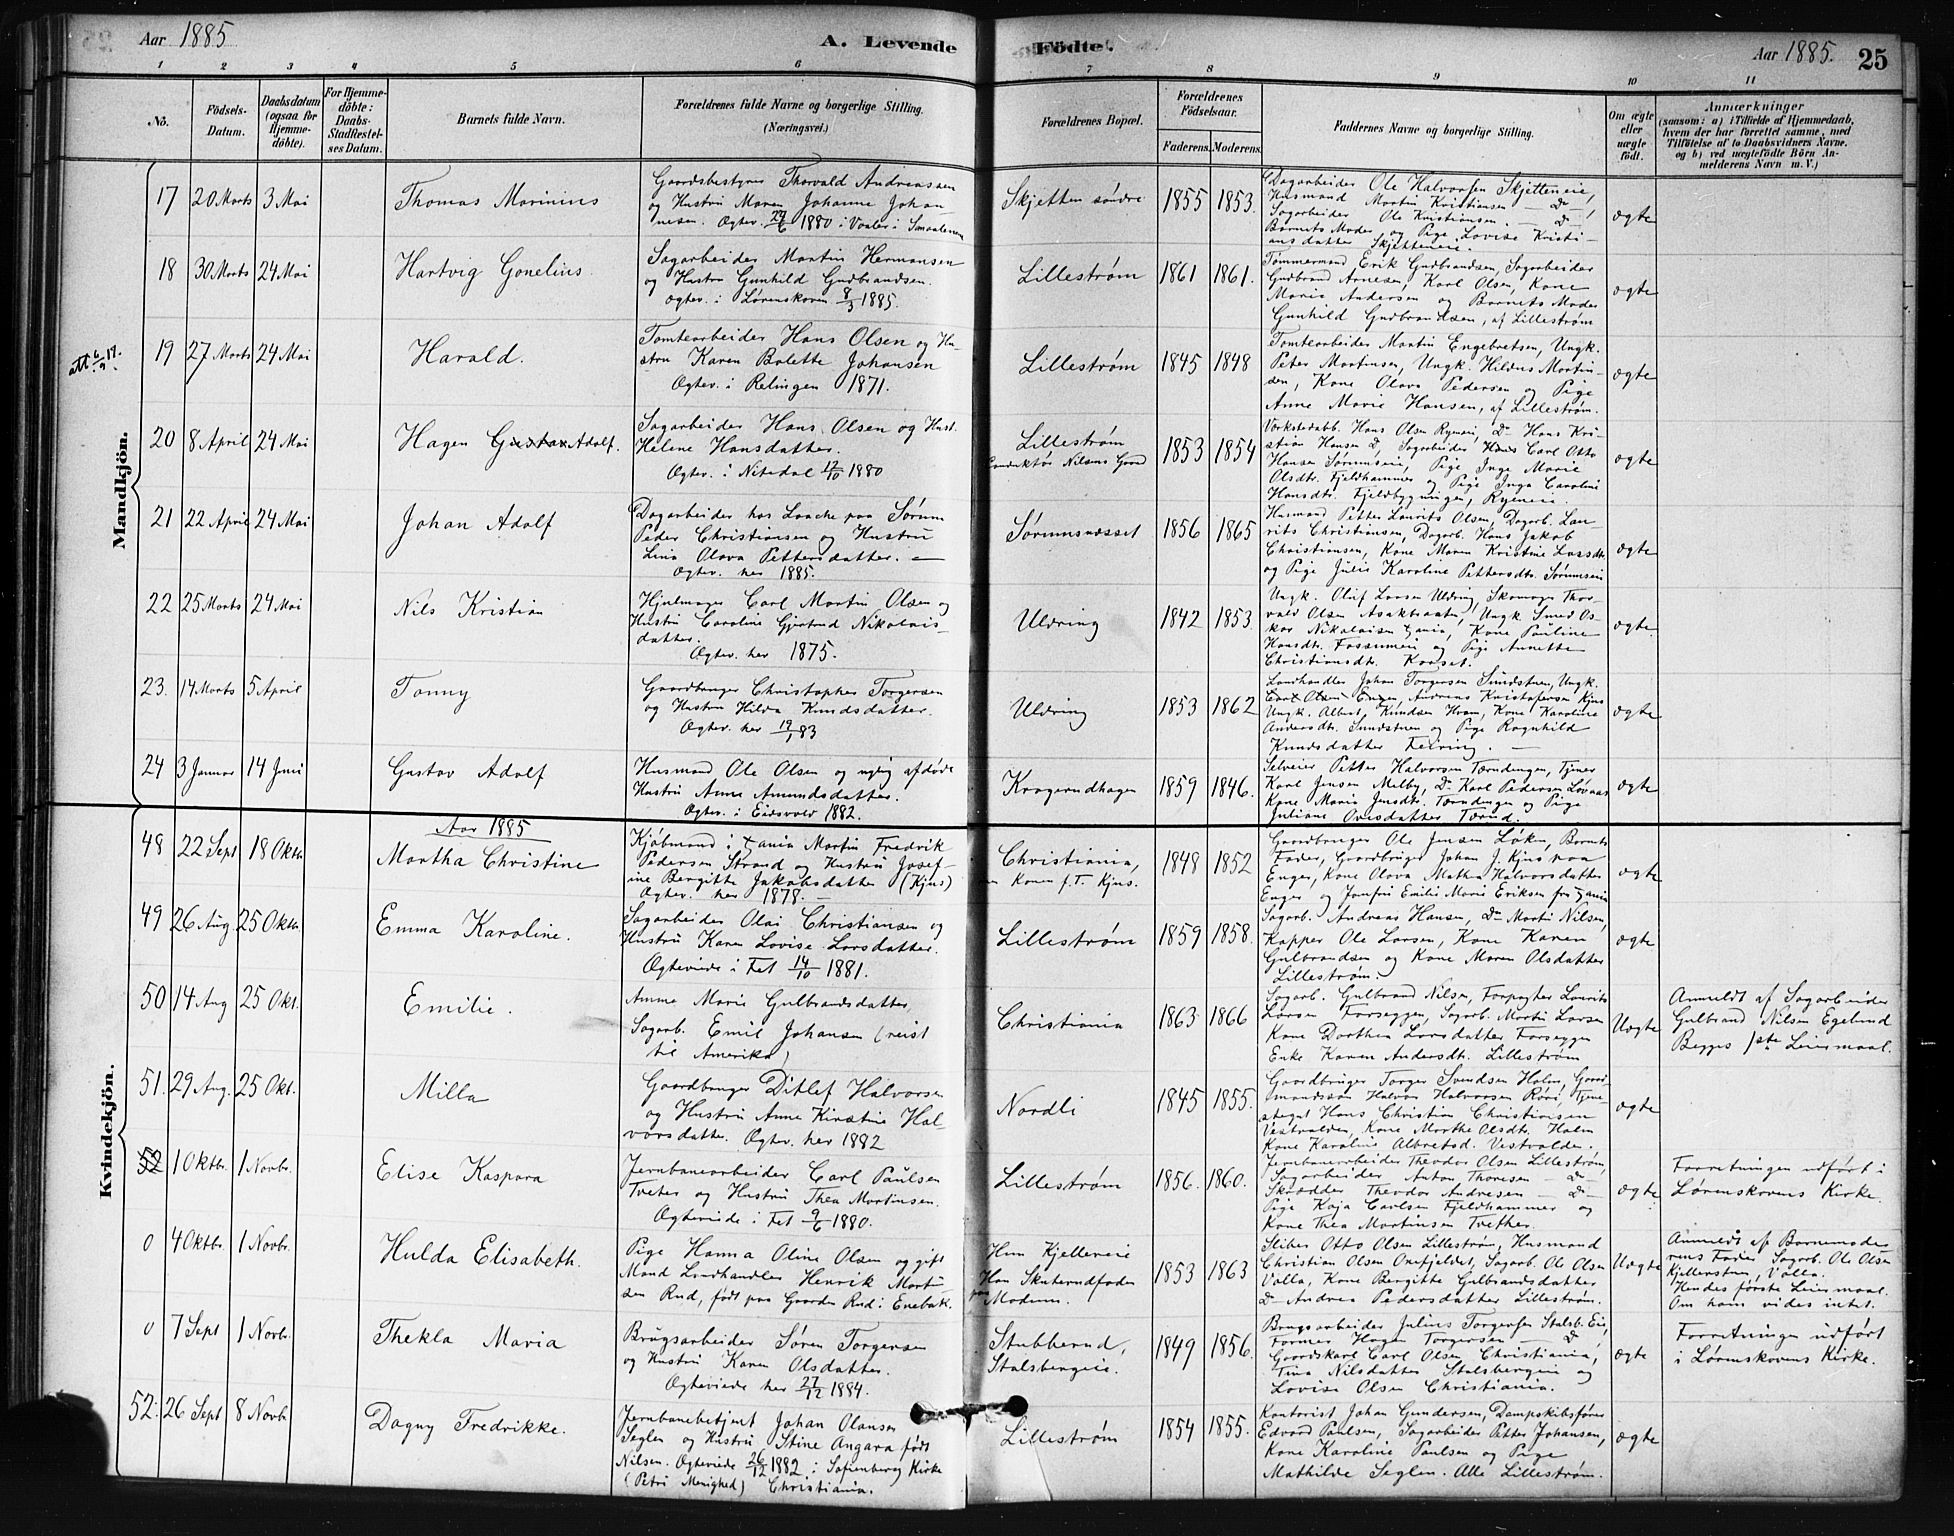 Aar 1885
A. Levende Födte.
Aar 1885.
25
1 2 3 4 5 6 7 8 9 10 11
No.
Födsels-Datum.
Daabsdatum (ogsaa for Hjemme-döbte).
For Hjemme-döbte: Daabs-Stadfæstel-ses Datum.
Barnets fulde Navn.
Forældrenes fulde Navne og borgerlige Stilling.
(Næringsvei.)
Forældrenes Bopæl.
Forældrenes Födselsaar.
Faderens. Moderens.
Faddernes Navne og borgerlige Stilling.
Om ægte eller uægte födt.
Anmærkninger
(saasom: a) i Tilfælde af Hjemmedaab,
hvem der har forrettet samme, med
Tilföielse af to Daabsvidners Navne.
og b) ved uægtefödte Börn An-
melderens Navn m. V.)
Mandkjön.
17 20 Marts 3 Mai
Thomas Marinius
Gaardsbestyrer Thorvald Andreassen
og Hustru Maren Johanne Johan-
nesen. Ægtev. 29/6 1880 i Vaaler i Smaalenene
Skjetten søndre
1855 1853.
Dagarbeider Ole Halvorsen Skjetteneie,
Husmand Martin Kristiansen — Do —,
Sagarbeider Ole Kristiansen — Do —
Barnets Moder og Pige Lovise Kristi-
ansdatter Skjetteneie.
ægte
18 30 Marts 24 Mai
Hartvig Gonelius.
Sagarbeider Martin Hermansen
og Hustru Gunhild Gudbrandsen.
Ægtev. i Lørenskoven 8/3 1885.
Lillestrøm
1861 1861.
Tømmermand Erik Gudbrandsen, Sagarbeider
Gudbrand Arnesen, Karl Olsen, Kone
Marie Andersen og Barnets Moder
Gunhild Gudbrandsen, af Lillestrøm
ægte
att. 6/9 19.
19 27 Marts 24 Mai
Harald.
Tomtearbeider Hans Olsen og Hu-
stru Karen Bolette Johansen
Ægtev. i Relingen 1871.
Lillestrøm
1845 1848
Tomtearbeider Martin Engebretsen, Ungk.
Peter Martinsen, Ungk. Hildus Martin-
sen, Kone Olava Pedersen og Pige
Anne Marie Hansen, af Lillestrøm.
ægte
20 8 April 24 Mai
Hagen Gustav Adolf.
Sagarbeider Hans Olsen og Hust.
Helene Hansdatter.
Ægtev. i Nitedal /10 1880
Lillestrøm
Konduktør Nilsens Gaard
1853 1854
Værkstedarb. Hans Olsen Ryeneie, Do Hans Kri-
stian Hansen Do, Sagarbeider Carl Otto
Hansen Sørumseie, Pige Inga Marie
Olsdtr. Fjeldhammer og Pige Inga Caroline
Hansdtr. Fjeldbygningen, Ryeneie.
ægte
21 22 April 24 Mai
Johan Adolf
Dagarbeider hos Laache paa Sørum
Peder Christiansen og Hustru
Lina Olava Pettersdatter. —
Ægtev. her 1885.
Sørumsnæsset
1856 1865
Husmand Petter Laurits Olsen, Dagarb. Lau-
rits Christiansen, Dagarb. Hans Jakob
Christiansen, Kone Maren Kristine Larsdtr.
og Pige Julie Karoline Pettersdtr. Sørumseie
ægte
22 25 Marts 24 Mai
Nils Kristian
Hjulmager Carl Martin Olsen og
Hustru Caroline Gjertrud Nikolais-
datter.
Ægtev. her 1875.
Uldring
1842 1853.
Ungk. Oluf Larsen Uldring, Skomager Thor-
vald Olsen Asakbraaten, Ungk. Smed Os-
kar Nikolaisen Xania, Kone Pauline
Hansdtr. Fossumeie og Pige Annette
Christiansdtr. Korset.
ægte
23. 14 Marts 5 April
Tonny
Gaardbruger Christopher Torgersen
og Hustru Hilda Knudsdatter.
Ægtev. her 19/1 83
Uldring
1853 1862
Landhandler Johan Torgersen Sundstuen, Ungk.
Carl Olsen Enger, Andreas Kristofersen Kjus
Ungk. Albert Knudsen Hvam, Kone Karoline
Andersdtr. Sundstuen og Pige Ragnhild
Knudsdatter Feiring. —
ægte
24 3 Januar 14 Juni
Gustav Adolf
Husmand Ole Olsen og nylig afdøde
Hustru Anne Amundsdatter.
Ægtev. i Eidsvold 1882.
Kragerudhagen
1859 1846.
Selveier Petter Halvorsen Tærudengen, Tjener
Karl Jensen Melby, Do Karl Pedersen Løvaas
Kone Maria Jensdtr. Tærudengen og Pige
Juliane Ovesdatter Tærud.
ægte
Kvindekjön.
Aar 1885
48 22 Sept 18 Oktb.
Martha Christine
Kjøbmand i Xania Martin Fredrik
Pedersen Strand og Hustru Josef-
ine Bergitte Jakobsdatter (Kjus)
Ægtev. her 1878. —
Christiania,
Konen f.T. Kjus.
1848 1852
Gaardbruger Ole Jensen Løken, Barnets
Fader, Gaardbruger Johan J. Kjus paa
Enger, Kone Olava Mathea Halvorsdatter
Enger og Jomfru Emilie Marie Eriksen fra Xania
ægte
49 26 Aug 25 Oktb.
Emma Karoline.
Sagarbeider Olai Christiansen og
Hustru Karen Lovise Larsdatter.
Ægteviede i Fet 14/10 1881.
Lillestrøm
1859 1858.
Sagarb. Andreas Hansen, Do Martin Nilsen,
Kapper Ole Larsen, Kone Karen
Gulbrandsen og Kone Maren Olsdatter
Lillestrøm.
ægte
50 14 Aug 25 Okt.
Emilie.
Anne Marie Gulbrandsdatter,
Sagarb. Emil Johansen (reist
til Amerika)
Christiania
1863 1866
Sagarb. Gulbrand Nilsen, Forpagter Laurits
Larsen Forseggen, Sagarb. Martin Larsen
Kone Dorthea Larsdatter Forseggen
Enke Karen Andersdtr. Lillestrøm
Uægte
Anmeldt af Sagarbeider
Gulbrand Nilsen Egelund
Begges 1ste Leiermaal.
51. 29 Aug. 25 Okt.
Milla
Gaardbruger Ditlef Halvorsen
og Hustru Anne Kirstine Hal-
vorsdatter. Ægtev. her 1882
Nordli
1845 1855.
Gaardbruger Torger Svendsen Holm, Gaard-
mandssøn Halvor Halvorsen Røisi, Tjene-
stegut Hans Christian Christiansen
Vestvolden, Kone Marthe Olsdtr. Holm
Kone Karoline Albretsd. Vestvolden.
ægte
52 1 Oktbr. 1 Novbr.
Elise Kaspara
Jernbanearbeider Carl Paulsen
Treter og Hustru Thea Mortinsen.
Ægteviede i Fet 9/6 1880.
Lillestrøm
1856. 1860.
Jernbanearbeider Theodor Olsen Lillestrøm,
Sagarbeider Anton Thoresen — Do —
Skrædder Theodor Andresen — Do —
Pige Kaja Carlsen Fjeldhammer og
Kone Thea Martinsen Trether.
ægte
Forretningen udført i
Lørenskovens Kirke.
0 4 Oktbr. 1 Novbr.
Hulda Elisabeth.
Pige Hanna Oline Olsen og gift
Mand Landhandler Henrik Marti-
sen Rud, født paa Gaarden Rud i Enebak.
Hun Kjellereie
Han Skuterudfoden
paa Modum.
1853 1863
Sliber Otto Olsen Lillestrøm, Husmand
Christian Olsen Onefjeldet, Sagarb. Ole Olsen
Volla, Kone Bergitte Gulbrandsdatter
Do Andrea Pedersdatter Lillestrøm.
Uægte
Anmeldt af Barnemode-
rens Fader Sagarb. Ole Olsen
Kjellerstuen, Volla.
Hendes første Leiermaal.
Om ham vides intet.
0 7 Sept 1 Novb.
Thekla Maria
Brugsarbeider Søren Torgersen
og Hustru Karen Olsdatter.
Ægteviede her 27/12 1884.
Stubberud,
Stalsbergeie.
1849 1856.
Brugsarbeider Julius Torgersen Stalsb. Eie,
Former Hagen Torgersen — Do —
Gaardskarl Carl Olsen Christiania,
Tina Nilsdatter Stalsbergeie og
Lovise Olsen Christiania.
ægte
Forretningen udført
i Lørenskovens Kirke.
52. 26 Sept 8 Novb.
Dagny Fredrikke.
Jernbanebetjent Johan Olausen
Seglen og Hustru Stine Angara født
Nilsen. Ægteviede 26/12 1882 i Sofienberg Kirke
(Petri Menighed) Christiania.
Lillestrøm
1854 1855.
Kontorist Johan Gundersen, Dampskibsfører
Edvard Paulsen, Sagarbeider Petter Johansen,
Kone Karoline Paulsen og Pige
Mathilde Seglen. Alle Lillestrøm.
ægte